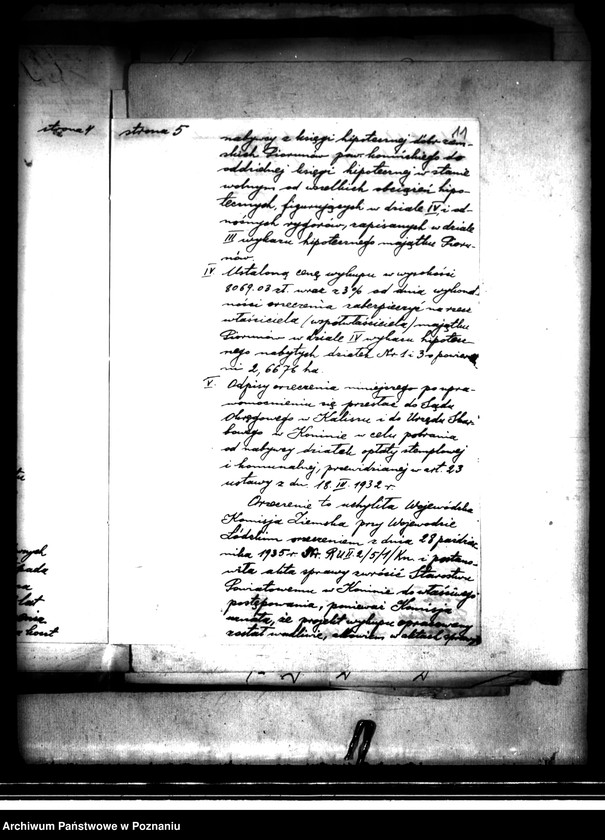 strona 4
strona 5
11
nabywcy z księgi hipotecznej dóbr ziem-
skich Piorunów pow. konińskiego do
oddzielnej księgi hipotecznej w stanie
wolnym od wszelkich obciążeń hipo-
tecznych, figurujących w dziale IV i od-
nośnych rygorów, zapisanych w dziale
III wykazu hipotecznego majątku Pioru-
nów.
IV Ustaloną cenę wykupu w wysokości
8069.03 zł. wraz z 3% od dnia wykonal-
ności orzeczenia zabezpieczyć na rzecz
właściciela /współwłaściciela/ majątku
Piorunów w dziale IV wykazu hipotecz
nego nabytych działek Nr 1 i 3 o powierz
ni 2,6676 ha.
V. Odpisy orzeczenia niniejszego po upra-
womocnieniu się przesłać do Sądu
Okręgowego w Kaliszu i do Urzędu Skar-
bowego w Koninie w celu pobrania
od nabywcy działek opłaty stemplowej
i komunalnej, przewidzianej w art. 23
ustawy z dn. 18 IV 1932 r.
Orzeczenie to uchyliła Wojewódzka
Komisja Ziemska przy Wojewodzie
Łódzkim orzeczeniem z dnia 28 paździer
nika 1935 r. Nr. RUII. 2/5/1/Kn. i postano-
wiła akta sprawy zwrócić Starostwu
Powiatowemu w Koninie do właściwego
postępowania, ponieważ Komisja
uznała, że projekt wykupu opracowany
został wadliwie, albowiem w aktach sprawy
Archiwum Państwowe w Poznaniu